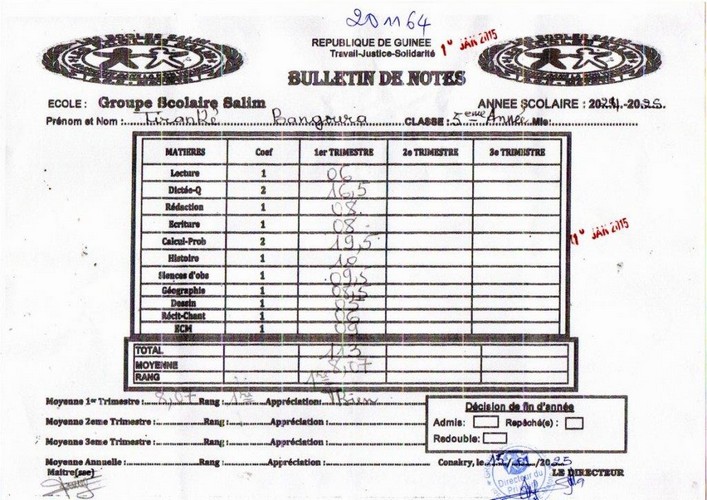 201164
REPUBLIQUE DE GUINEE
Travail-Justice-Solidarité
1º JAN 2015
BULLETIN DE NOTES
ECOLE : Groupe Scolaire Salim ANNEE SCOLAIRE : 2024-2025.
Prénom et Nom : Tiranké Bangoura CLASSE : 5eme Année Mle:
MATIERES Coef 1er TRIMESTRE 2e TRIMESTRE 3e TRIMESTRE
Lecture 1 06
Dictée-Q 2 16,5
Rédaction 1 08
Ecriture 1 08
Calcul-Prob 2 19,5
1º JAN 2015
Histoire 1 10
Siences d'obs 1 09,5
Géographie 1 08,5
Dessin 1 05
Récit-Chant 1 06
ECM 1 09
TOTAL 113
MOYENNE 8,07
RANG 1ere
Moyenne 1er Trimestre : 8,07 Rang : 1ere Appréciation: TBien
Décision de fin d'année
Moyenne 2eme Trimestre : Rang : Appréciation :
Admis: Repêché(e) :
Moyenne 3eme Trimestre : Rang : Appréciation :
Redouble:
Moyenne Annuelle : Rang : Appréciation : Conakry, le /2025
Maître(sse) LE DIRECTEUR
Directeur du